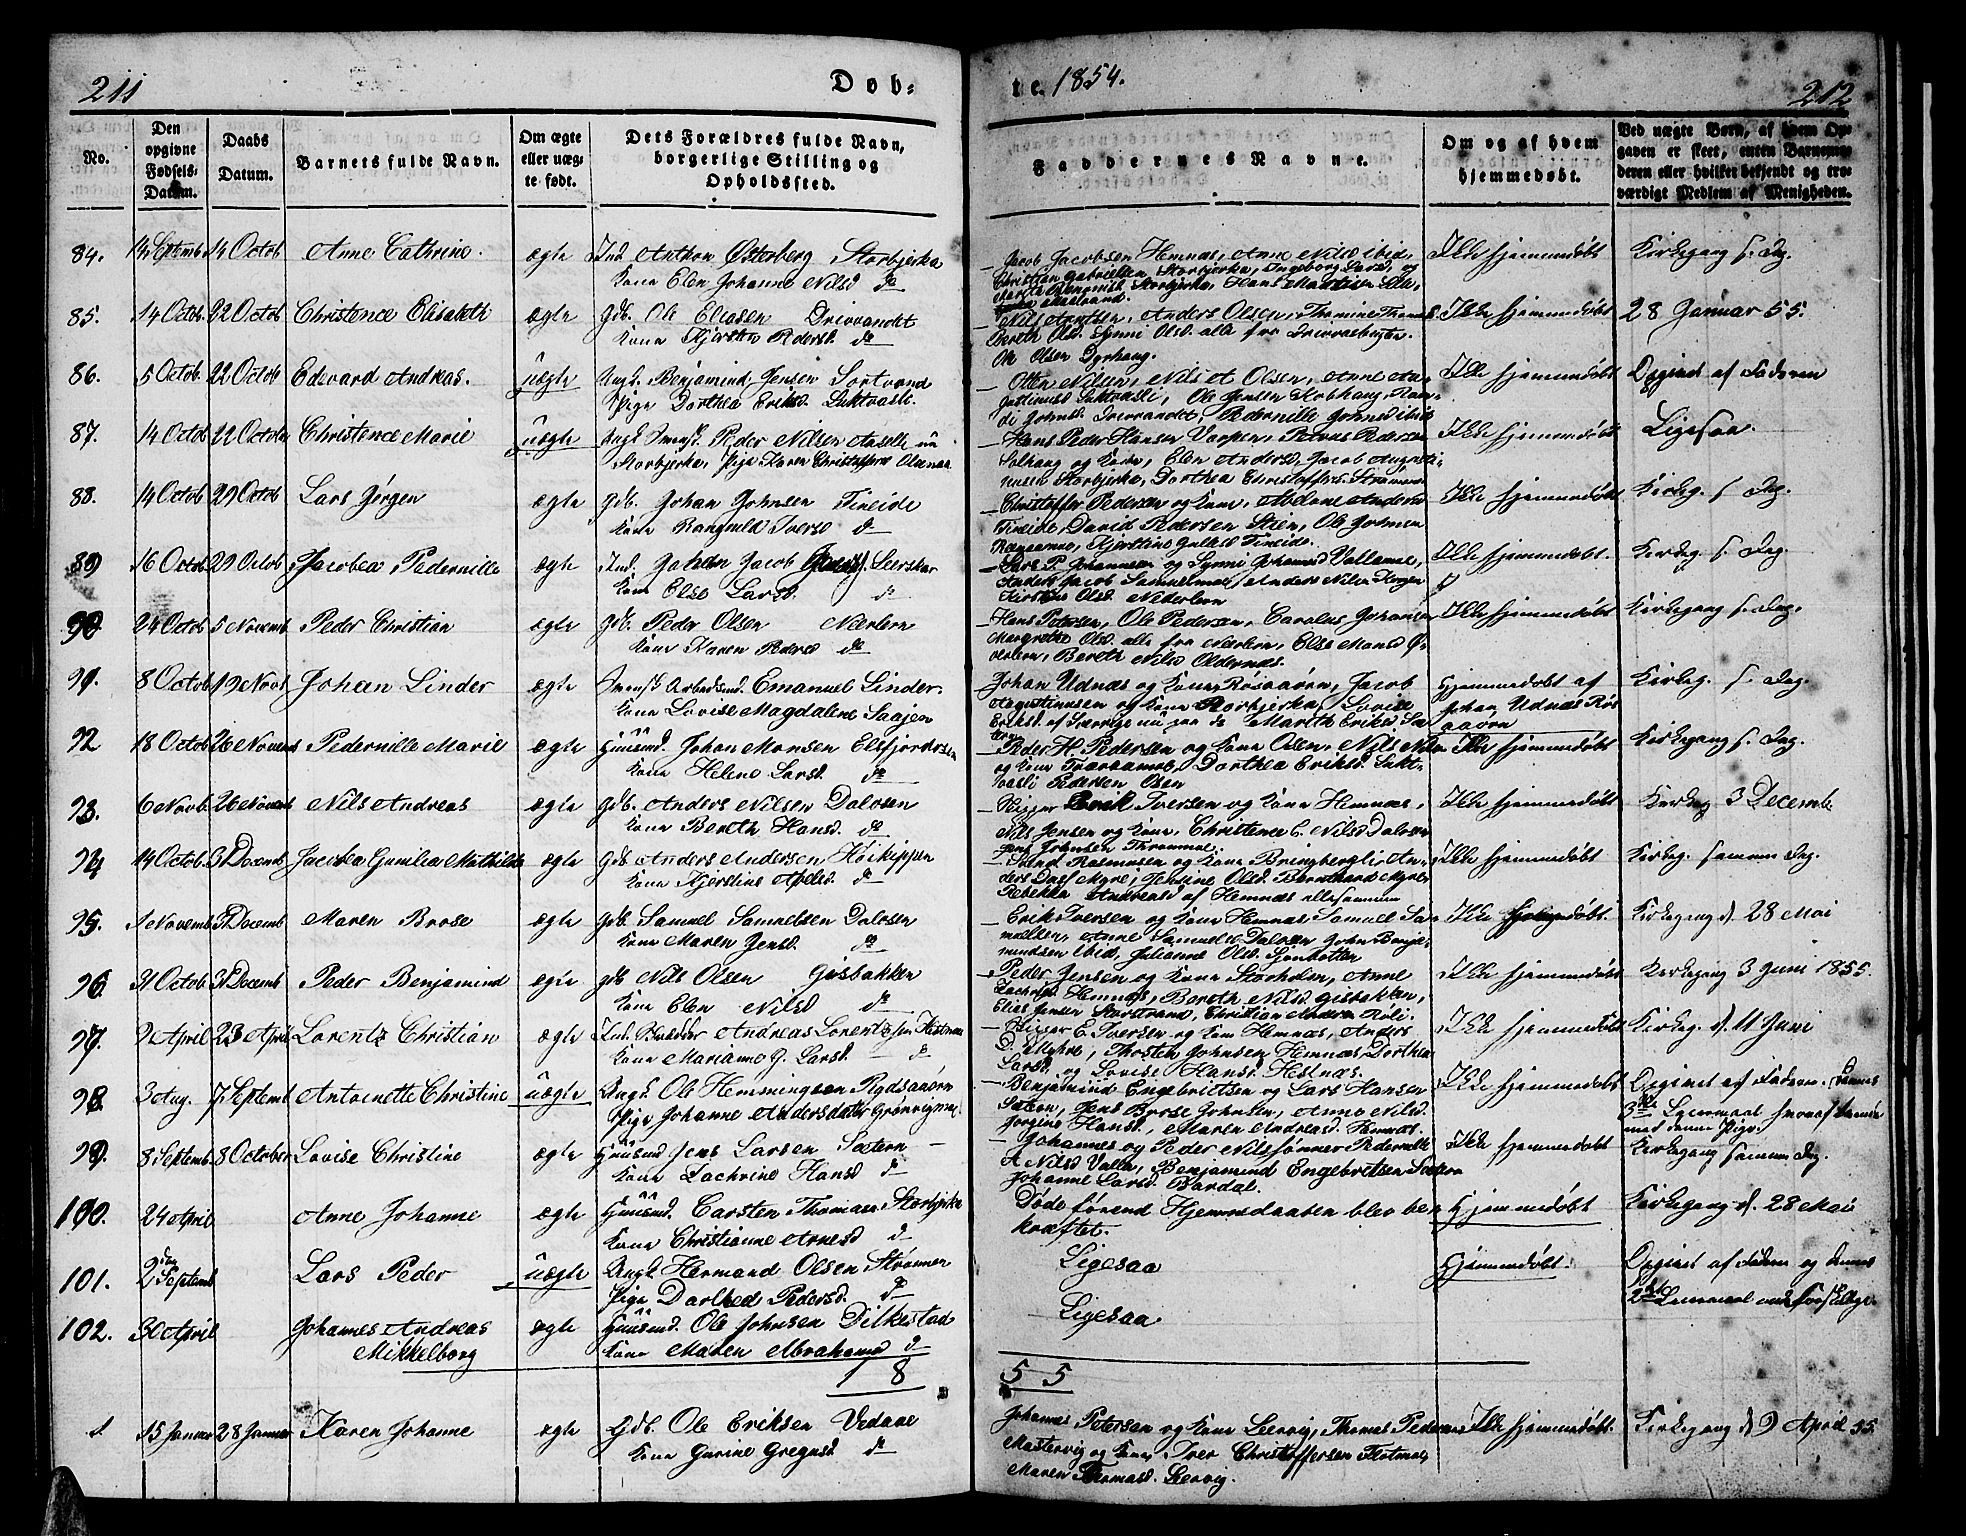 211
Døb-
te. 1854.
212
No.
Den opgivne Fødsels-Datum.
Daabs Datum.
Barnets fulde Navn.
Om ægte eller uæg-te født.
Dets Forældres fulde Navn, borgerlige Stilling og Opholdssted.
Faddernes Navne.
Om og af hvem hjemmedøbt.
Ved uægte Børn, af hvem Op-gaven er skeet, enten Barnemo-deren eller hvilker bekjendt og tro-værdigt Medlem af Menigheden.
84. 14 Septemb 14 Octob Anne Cathrine. ægte Ind Anthon Østerberg Storbjerka
Kone Elen Johanne Nilsd do
Jacob Jacobsen Hemnæs, Anne Nilsd ibid,
Christian Gabrielsen Storbjerka, Ingeborg Larsd, og
Ikke hjemmedøbt Kirkegang s. Dag.
85. 14 Octob. 22 Octob Christence Elisabeth ægte Gdb. Ole Eliasen Drevvandt
Kone Kjersten Pedersd. do
Anders Olsen,
Bereth Olsd. Synni Olsd. alle fra
Ole Olsen Dyrhaug.
Ikke hjemmedøbt 28 Januar 55.
86. 5 Octob 22 Octob Edevard Andreas. uægte Ungk. Benjamind Jensen Sortvand
Pige Dorthea Eriksd. Luktvasli.
Otter Nilsen, Nils A Olsen, Anne
Luktvasli, Ole Jensen
di Johnsd. Drevvandt, Pedernille Johnsd ibid
Ikke hjemmedøbt Opgivet af Faderen
87. 14 Octob 22 Octob Christence Marie uægte Ungk. Svensk. Peder Nilsen
Storbjerka, Pige Karen Christoffersd
Hans Peder Hansen Varpen, Petrus Pedersen
Solhaug og Kone, Elen Andersd, Jacob Augusti-
nusen Storbjerka, Dorthea Christoffersd.
Ikke hjemmedøbt Ligesaa.
88. 14 Octob 29 Octob Lars Jørgen ægte Gdb. Johan Johnsen Fineide
Kone Rangnild Iversd do
Christoffer Pedersen og Kone, Andersd
Fineide David Pedersen Steen, Ole Johnsen
Kjerstine Fineide.
Ikke hjemmedøbt Kirkeg. s Dag.
89 16 Octob 29 Octob Jacobea Pedernille ægte Ind. Johan Jacob Leerskar
Kone Else Larsd. do
Lars P. Johannesen og Synni Johansd
Anders Jacob
Olsd. Nederleern
Ikke hjemmedøbt. Kirkeg. s. Dag.
90 24 Octob 5 Novemb Peder Christian ægte Gdb. Peder Olsen Nerleern
Kone Karen Pedersd do
Hans Petersen, Ole Pedersen, Carolus Johansen
Margrethe Olsd. alle fra Nerleern, Else Monsd Ø-
verleern, Bereth Nilsd Oldernæs.
Ikke hjemmedøbt Kirkegang s. Dag.
91. 8 Octob 19 Novb Johan Linder ægte Svensk Arbedsmd. Emanuel Linder.
Kone Lovise Magdalene Saajen
Johan Udnæs og Kone Røsaaøren, Jacob
Augustinusen og Kone Storbjerka, Lovise
Eriksd. af Sverrige
Hjemmedøbt af
Johan Udnæs Røs-
aaøren
Kirkeg. s. Dag.
92 18 Octob 26 Novemb Pedernille Marie ægte Huusmd. Johan Monsen Elsfjordosen
Kone Helene Larsd. do
Peder H. Pedersen og Kone Osen, Nils
og Kone Dorthea Eriksd. Lukt-
vasli Pedersen Osen
Ikke hjemmedøbt Kirkegang s. Dag.
93. 6 Novb 26 Novemb Nils Andreas ægte Gdb. Anders Nilsen Dalosen
Kone Bereth Hansd. do
Iversen og Kone Hemnæs,
Nils Jensen og Kone, Christence C. Nilsd Dalosen
Ikke hjemmedøbt Kirkeg 3 Decemb
94 14 Octob. 3 Decemb Jacobea Gunilia Mathilde ægte Gdb Anders Andersen Kirkippen
Kone Kjerstine Abelsd. do
Rasmusen og Kone Bringbergli,
Rebekka Andreasd af Hemnæs allesammen
Ikke hjemmedøbt Kirkeg. samme Dag.
95. 1 Novemb 3 Decemb Maren Brose ægte Gdb Samuel Samuelsen Dalosen
Kone Maren Jensd. do
Erik Iversen og Kone Hemnæs Samuel Sa-
muelsen, Anne Samuelsd Dalosen John Benja-
mindsen ibid, Julianne Olsd. Sjonbotten
Ikke hjemmedøbt Kirkegang d. 28 Mai
96. 31 Octob 31 Decemb Peder Benjamind ægte Gdb Nils Olsen Gisbakken
Kone Elen Nilsd do
Peder Jensen og Kone Storholen, Anne
Hemnæs, Bereth Nilsd Gisbakken,
Elias Jensen Storstrand, Christian Anders
Ikke hjemmedøbt Kirkegang 3 Juni 1855.
97. 2 April 23 April Lorentz Christian ægte Andreas Lorentzsen Hestnæs
Kone Marianne G. Larsd. do
E. Iversen og Kone Hemnæs, Anders
D. Myhre, Thosten Johnsen Hemnæs, Dorthea
Larsd. og Lovise Hansd. Hestnæs.
Ikke hjemmedøbt Kirkeg. d. 11 Juni
98. 3 Aug. 7 Septemb Antoinette Christine uægte Ungk. Ole Hemmingsen
Pige Johanne Andersdatter
Benjamind Engebritsen og Lars Hansen
Sætern, Jens Brose Johnsen, Anne Nilsd.
Jorgine Hansd., Maren Andreasd. Hemnæs.
Ikke hjemmedøbt Opgivet af Faderen.
3die Leiermaal
med denne Pige.
99. 8 Septemb. 8 October Lovise Christine ægte Huusmd Jens Larsen Sætern
Kone Zachrine Hansd do
Johannes og Peder Nilssønner Pedernille
A Nilsd Valla, Benjamind Engebritsen Sætern
Johanne Larsd. Bardal.
Ikke hjemmedøbt Kirkegang samme Dag.
100. 24 April Anne Johanne ægte Huusmd. Carsten Thomasen Storbjerka
Kone Christianne Arnesd do
Døde førend Hjemmedaaben blev be-
kræftet.
Hjemmedøbt Kirkegang d. 28 Mai
101. 2den Septemb Lars Peder uægte Ungk Hermand Olsen Strømmen
Pige Darthea Pedersd. do
Ligesaa
Hjemmedøbt. Opgivet af Faderen og Dennes
2det Leiermaal
102. 30 April Johannes Andreas ægte Huusmd. Ole Johnsen Dilkestad
Mikkelborg Kone Maren Abrahamsd do
Ligesaa
18
55
1 15 Januar 28 Januar Karen Johanne ægte Gdb. Ole Eriksen Vedaae
Kone Gurine Gregusd. do
Johannes Petersen og Kone Leervig, Thomas Pedersen
Mastervig og Kone, Iver Christoffersen Flotmoe,
Maren Thomasd. Leervig.
Ikke hjemmedøbt. Kirkegang d 9 April 55.